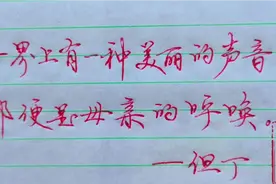 界上有一种美丽的声音
那便是母亲的呼唤
一但丁